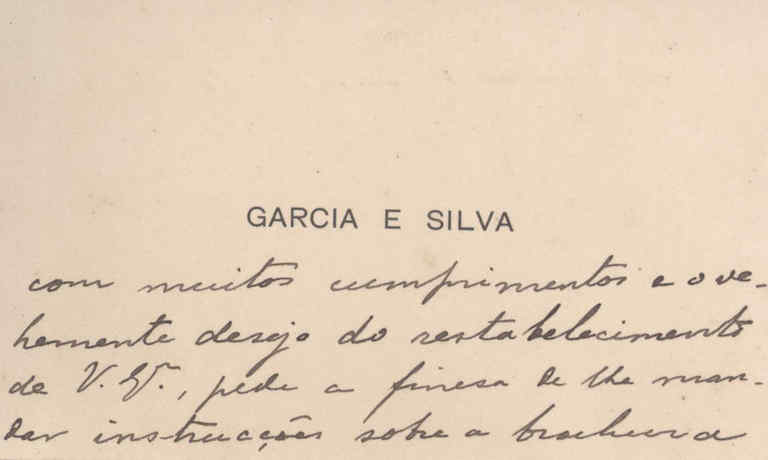 GARCIA E SILVA
com muitos cumprimentos e o ve-
hemente desejo do restabelecimento
de V. Exª., pede a finesa de lhe man-
dar instrucções sobre a brochura